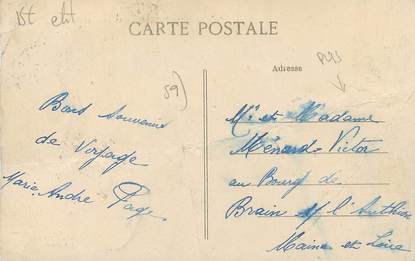 CARTE POSTALE
Adresse
59)
Bons souvenirs
de Voyage
Marie André Page
Mr et Madame
Ménard-Victor
au Bourg de
Brain s/ l'Authion
Maine et Loire